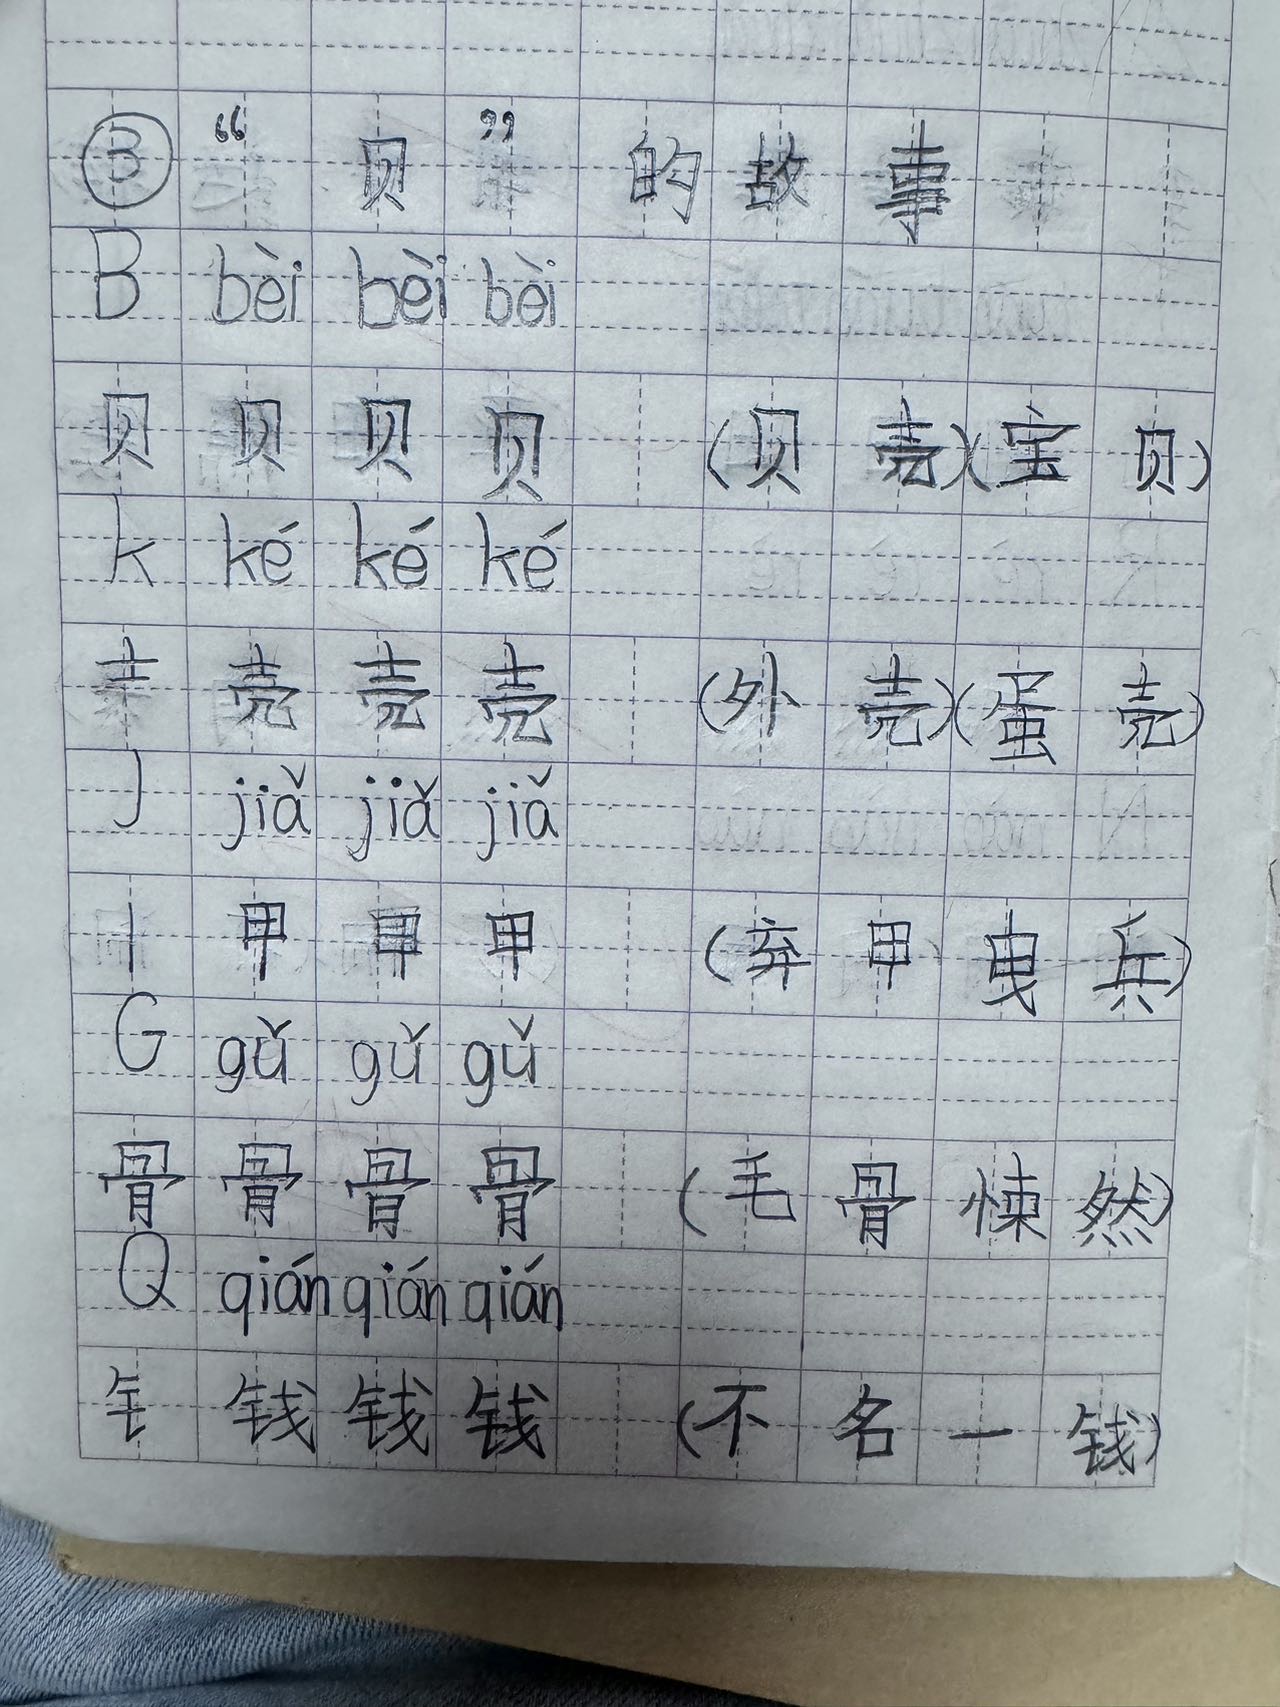 ③“贝”的故事
B bèi bèi bèi
贝 贝 贝 贝 (贝壳)(宝贝)
k ké ké ké
士 壳 壳 壳 (外壳)(蛋壳)
J jiǎ jiǎ jiǎ
丨 甲 甲 甲 (弃甲曳兵)
G gǔ gǔ gǔ
骨 骨 骨 骨 (毛骨悚然)
Q qián qián qián
钅 钱 钱 钱 (不名一钱)